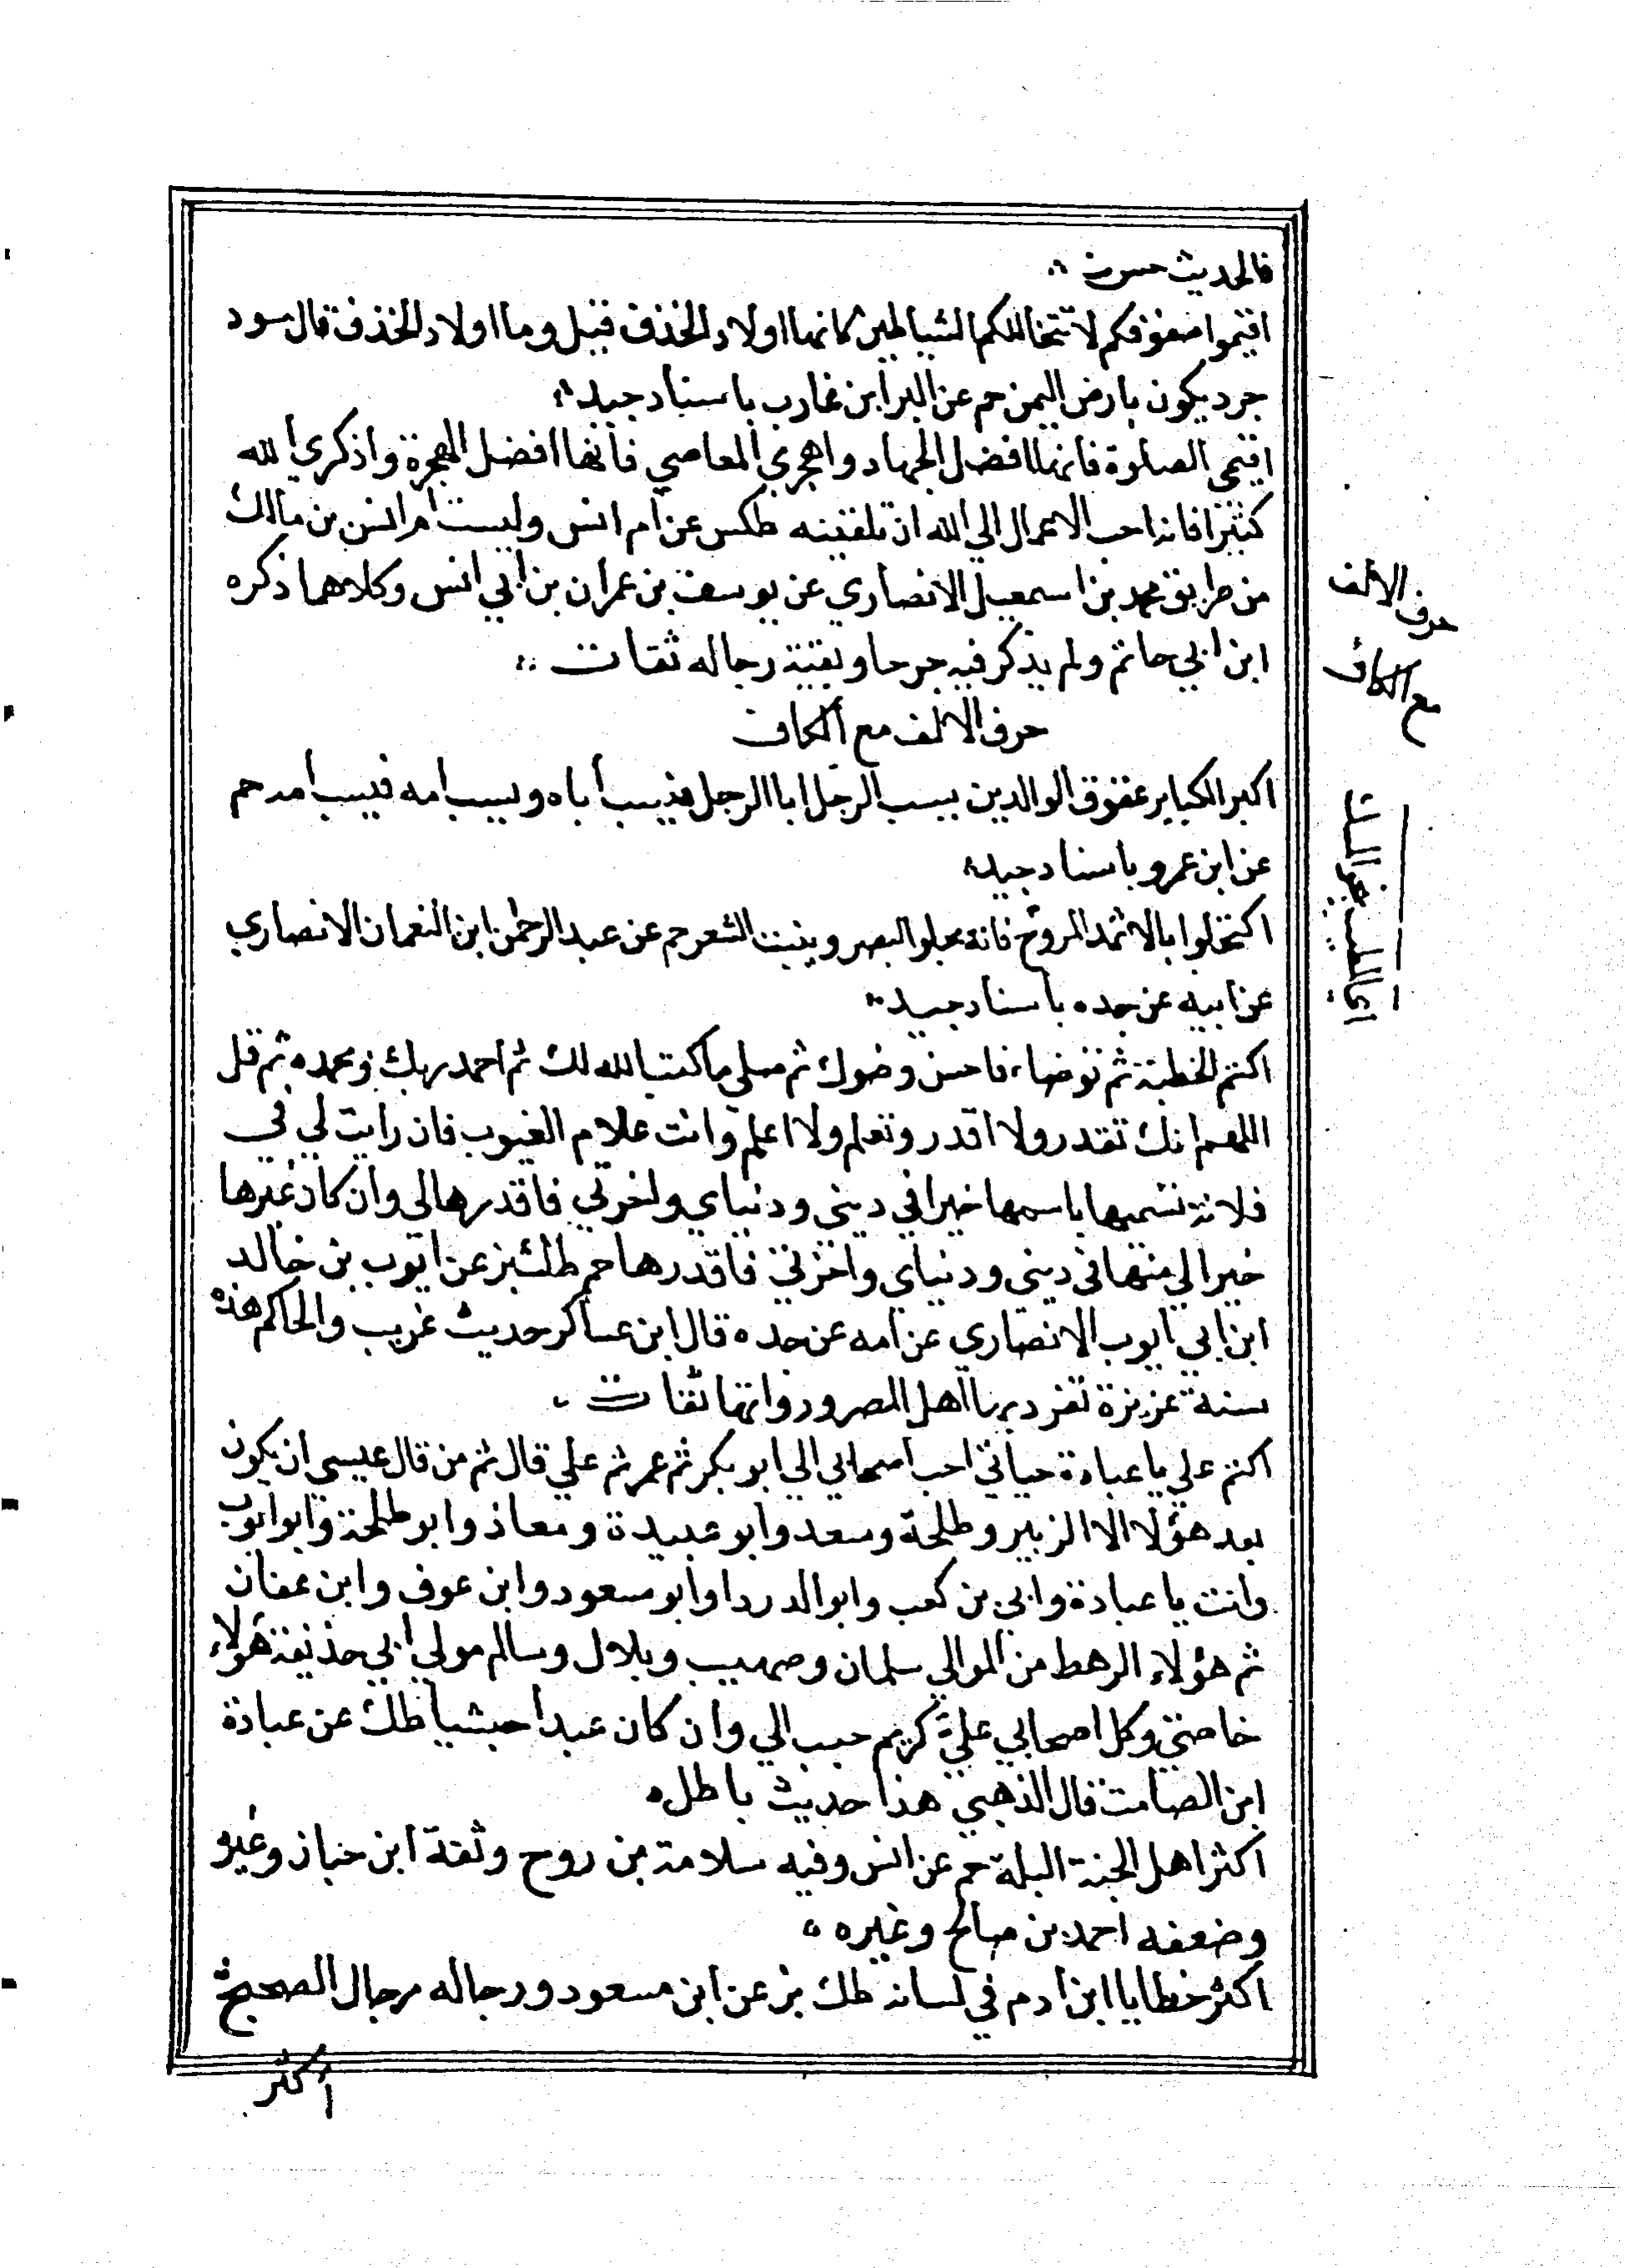 فالحديث حسن
اقيموا صفوفكم لا تتخاللكم الشياطين كانها اولاد الخذف قيل وما اولاد الخذف قال سود
جرد يكون بارض اليمن حم عن البرا بن عازب باسناد جيد
اقيمي الصلوة فانها افضل الجهاد واهجري المعاصي فانها افضل الهجرة واذكري الله
كثيرا فانه احب الاعمال الي الله ان تلقينه طكس عن ام انس وليست ام انس بن مالك
من طريق محمد بن اسمعيل الانصاري عن يوسف بن عمران بن ابي انس وكلاهما ذكره
ابن ابي حاتم ولم يذكر فيه جرحا وبقية رجاله ثقات
حرف الالف مع الكاف
اكبر الكباير عقوق الوالدين يسب الرجل ابا الرجل فيسب اباه ويسب امه فيسب امه حم
عن ابن عمرو باسناد جيد
اكتحلوا بالاثمد المروح فانه يجلو البصر وينبت الشعر حم عن عبد الرحمن ابن النعمان الانصاري
عن ابيه عن جده باسناد جيد
اكتم الخطبة ثم توضاء فاحسن وضوك ثم صلي ما كتب الله لك ثم احمد ربك ومجده ثم قل
اللهم انك تقدر ولا اقدر وتعلم ولا اعلم وانت علام الغيوب فان رايت لي في
فلانة تسميها باسمها خيرا في ديني ودنياي واخرتي فاقدرها لي وان كان غيرها
خيرا لي منها في ديني ودنياي واخرتي فاقدرها حم عن ايوب بن خالد
ابن ابي ايوب الانصاري عن امه عن جده قال ابن عساكر حديث غريب والحاكم هذه
سنة عزيزة تفرد بها اهل المصر ورواتها ثقات
اكتم علي يا عبادة حياتي احب اصحابي الي ابو بكر ثم عمر ثم علي قال ثم من قال عيسي ان يكون
بعد هؤلا الا الزبير وطلحة وسعد وابو عبيدة ومعاذ وابو طلحة وابو ايوب
وانت يا عبادة وابي بن كعب وابو الدردا وابو مسعود وابن عوف وابن عفان
ثم هؤلاء الرهط من الموالي سلمان وصهيب وبلال وسالم مولي ابي حذيفة هؤلاء
خاصتي وكل اصحابي علي كريم حبب الي وان كان عبدا حبشيا طك عن عبادة
ابن الصامت قال الذهبي هذا حديث باطل
اكثر اهل الجنة البله حم عن انس وفيه سلامة بن روح وثقة ابن حبان وغيره
وضعفه احمد بن صالح وغيره
اكثر خطايا ابن ادم في لسانه طك بز عن ابن مسعود ورجاله رجال الصحيح
اكثر
حرف الالف
مع الكاف